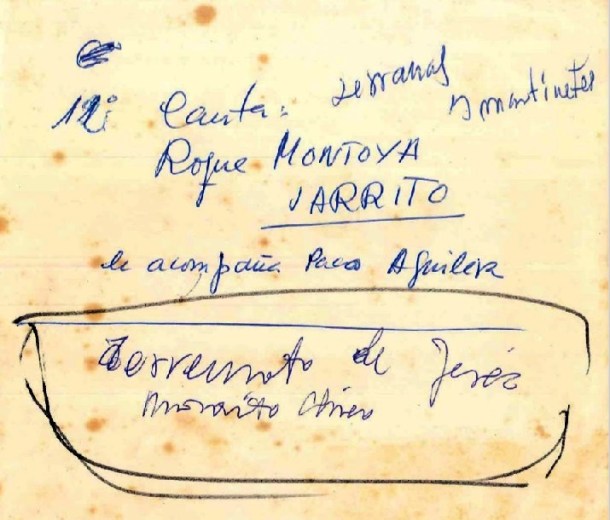 12: Canta: serranas y martinetes
Roque MONTOYA
JARRITO
le acompaña Paco Aguilera
Terremoto de Jeréz
Moraito Chico